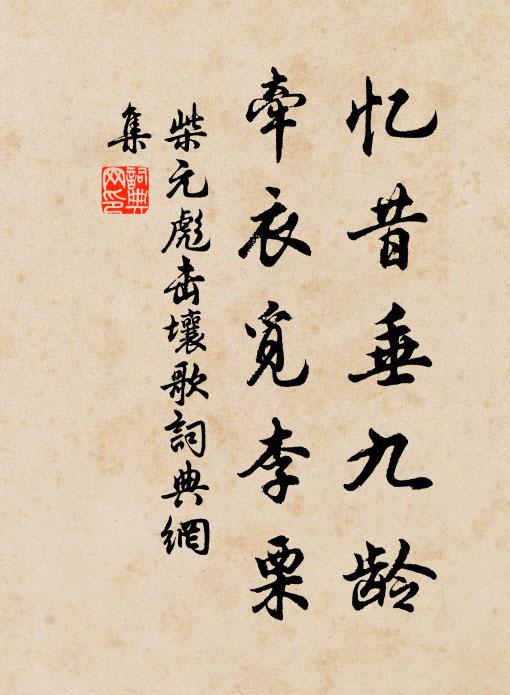 忆昔垂九龄
牵衣觅李栗
柴元彪击壤歌詞典網
集
詞典
网印